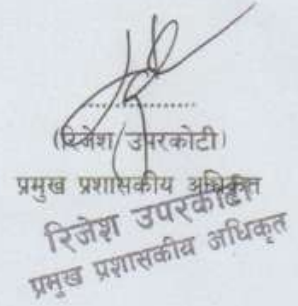 (रिजेश उपरकोटी)
प्रमुख प्रशासकीय अधिकृत
रिजेश उपरकोटी
प्रमुख प्रशासकीय अधिकृत